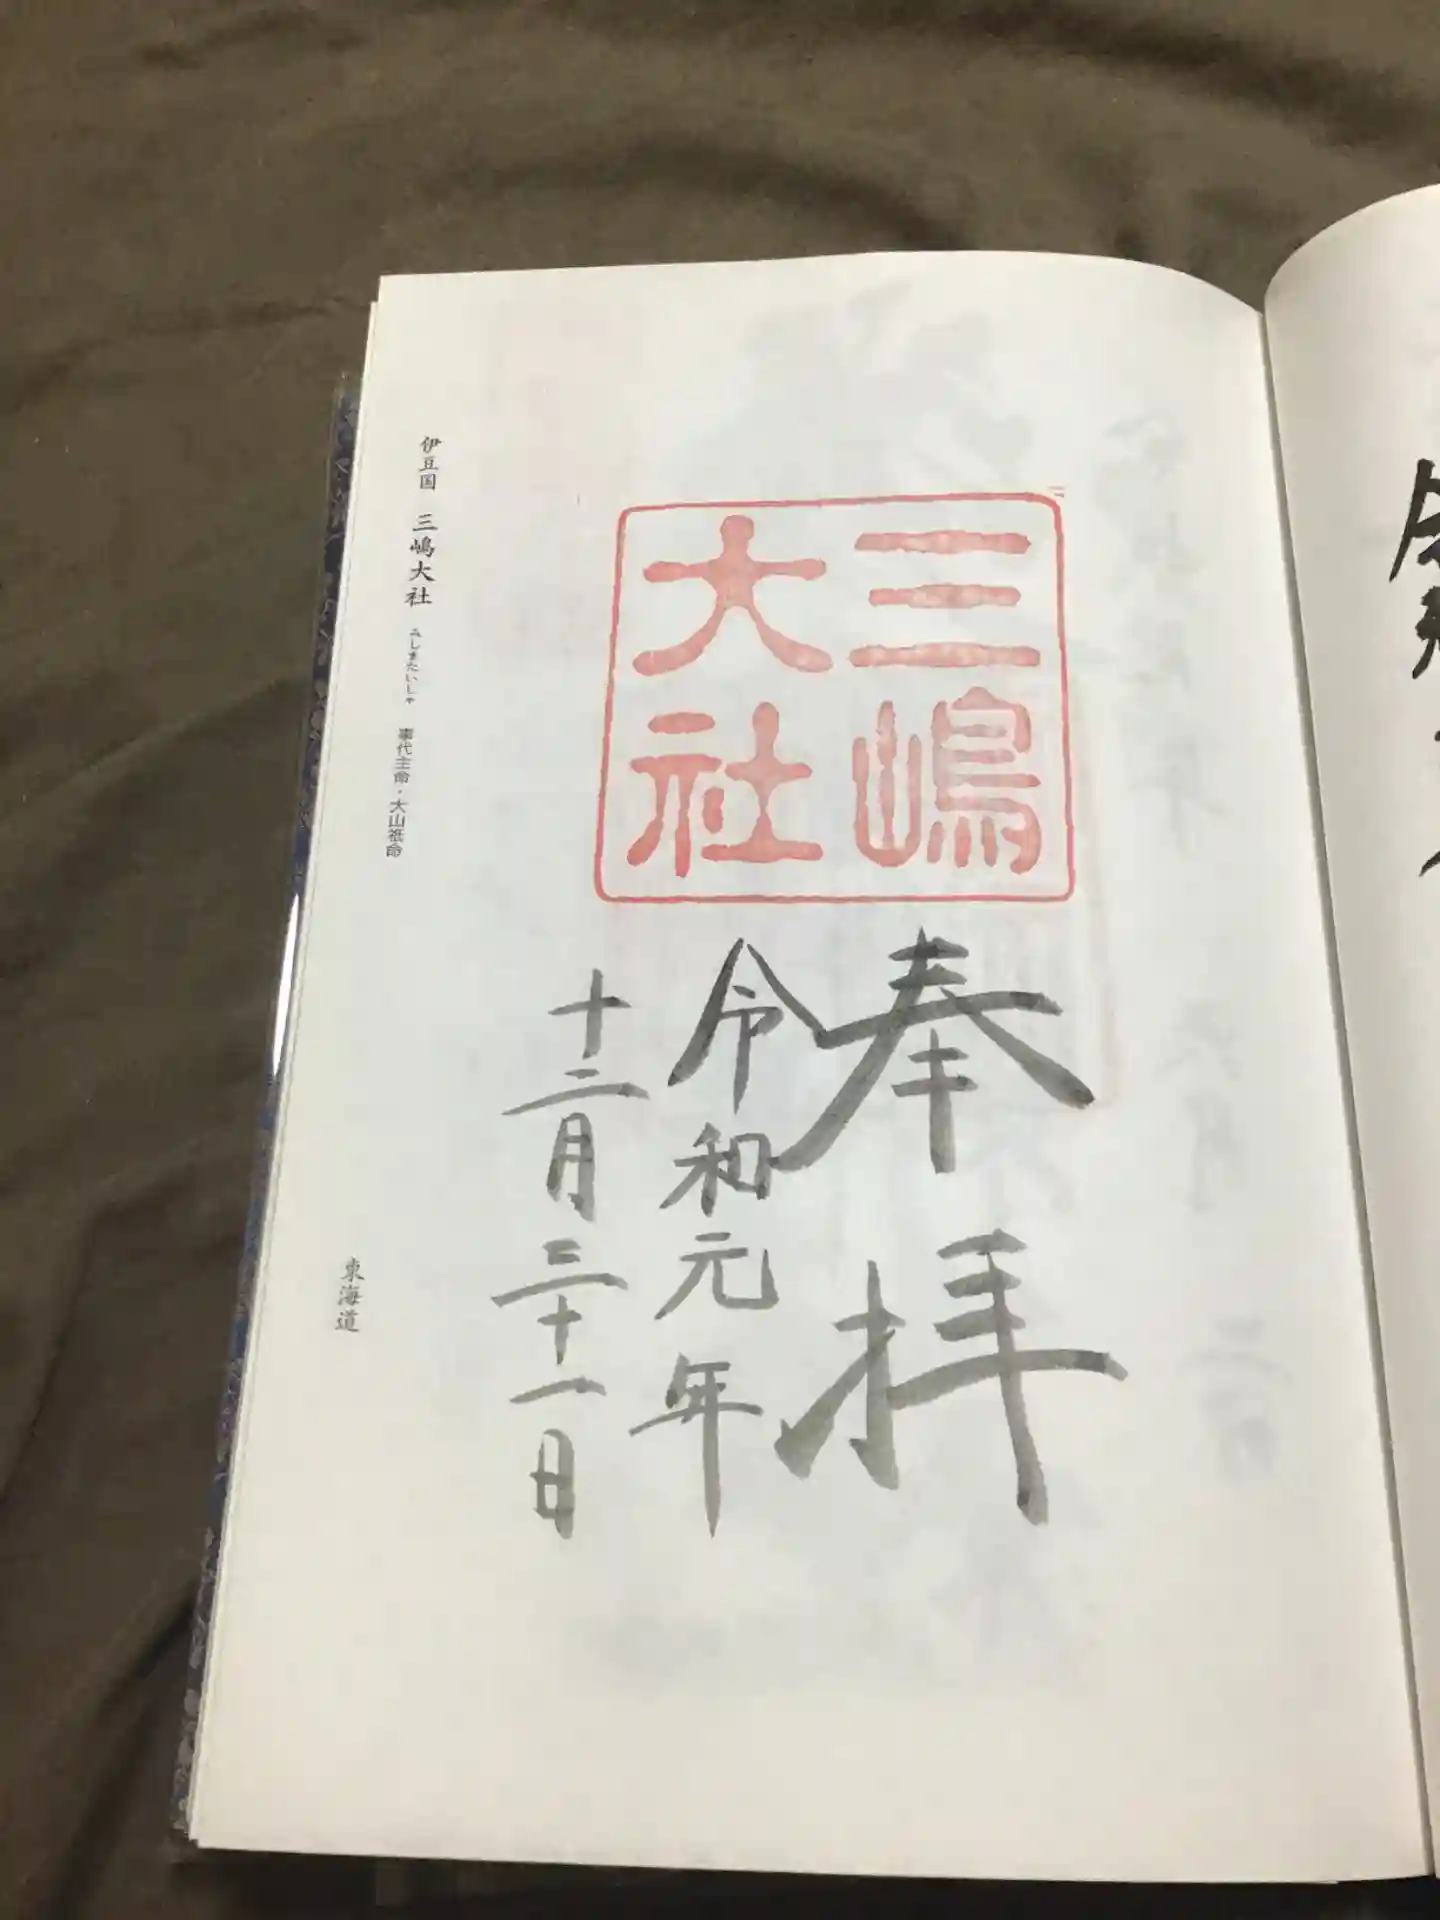 三嶋
大社
奉拝
令和元年
十二月三十一日
伊豆国 三嶋大社 みしまたいしゃ 事代主命・大山祇命
東海道